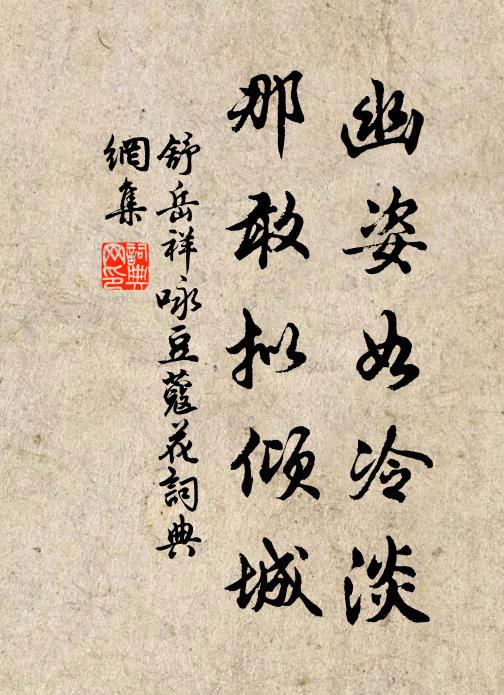 幽姿如冷淡
那敢拟倾城
舒岳祥咏豆蔻花詞典
網集
詞典网印